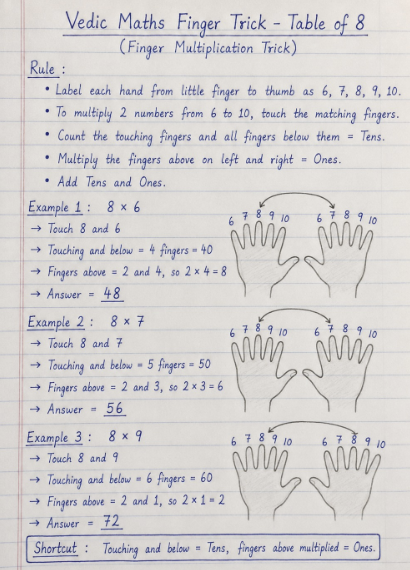 Vedic Maths Finger Trick - Table of 8
(Finger Multiplication Trick)
Rule :
• Label each hand from little finger to thumb as 6, 7, 8, 9, 10.
• To multiply 2 numbers from 6 to 10, touch the matching fingers.
• Count the touching fingers and all fingers below them = Tens.
• Multiply the fingers above on left and right = Ones.
• Add Tens and Ones.
Example 1 : 8 × 6
→ Touch 8 and 6
→ Touching and below = 4 fingers = 40
→ Fingers above = 2 and 4, so 2 × 4 = 8
→ Answer = 48
6 7 8 9 10 6 7 8 9 10
Example 2 : 8 × 7
→ Touch 8 and 7
→ Touching and below = 5 fingers = 50
→ Fingers above = 2 and 3, so 2 × 3 = 6
→ Answer = 56
6 7 8 9 10 6 7 8 9 10
Example 3 : 8 × 9
→ Touch 8 and 9
→ Touching and below = 6 fingers = 60
→ Fingers above = 2 and 1, so 2 × 1 = 2
→ Answer = 72
6 7 8 9 10 6 7 8 9 10
Shortcut : Touching and below = Tens, fingers above multiplied = Ones.